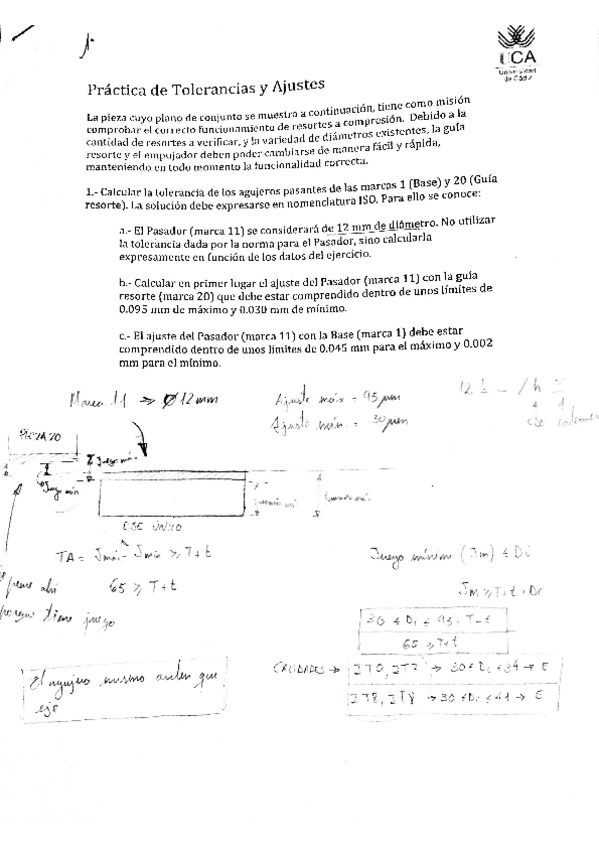 UCA
Universidad
de Cádiz
Práctica de Tolerancias y Ajustes
La pieza cuyo plano de conjunto se muestra a continuación, tiene como misión
comprobar el correcto funcionamiento de resortes a compresión. Debido a la
cantidad de resortes a verificar, y la variedad de diámetros existentes, la guía
resorte y el empujador deben poder cambiarse de manera fácil y rápida,
manteniendo en todo momento la funcionalidad correcta.
1.- Calcular la tolerancia de los agujeros pasantes de las marcas 1 (Base) y 20 (Guía
resorte). La solución debe expresarse en nomenclatura ISO. Para ello se conoce:
a.- El Pasador (marca 11) se considerará de 12 mm de diámetro. No utilizar
la tolerancia dada por la norma para el Pasador, sino calcularla
expresamente en función de los datos del ejercicio.
b.- Calcular en primer lugar el ajuste del Pasador (marca 11) con la guía
resorte (marca 20) que debe estar comprendido dentro de unos límites de
0.095 mm de máximo y 0.030 mm de mínimo.
c.- El ajuste del Pasador (marca 11) con la Base (marca 1) debe estar
comprendido dentro de unos límites de 0.045 mm para el máximo y 0.002
mm para el mínimo.
Marca 11 ⇒ Ø12mm
Ajuste máx = 95 µm
Ajuste mín. = 30 µm
PIEZA 20
Juego máx
Juego mín
EJE ÚNICO
TA = Jmáx - Jmín ≥ T+t
65 ≥ T+t
porque tiene juego
Juego mínimo (Jm) ≤ Di
65 ≥ T+t
El agujero mismo orden que
eje
CALIDADES →